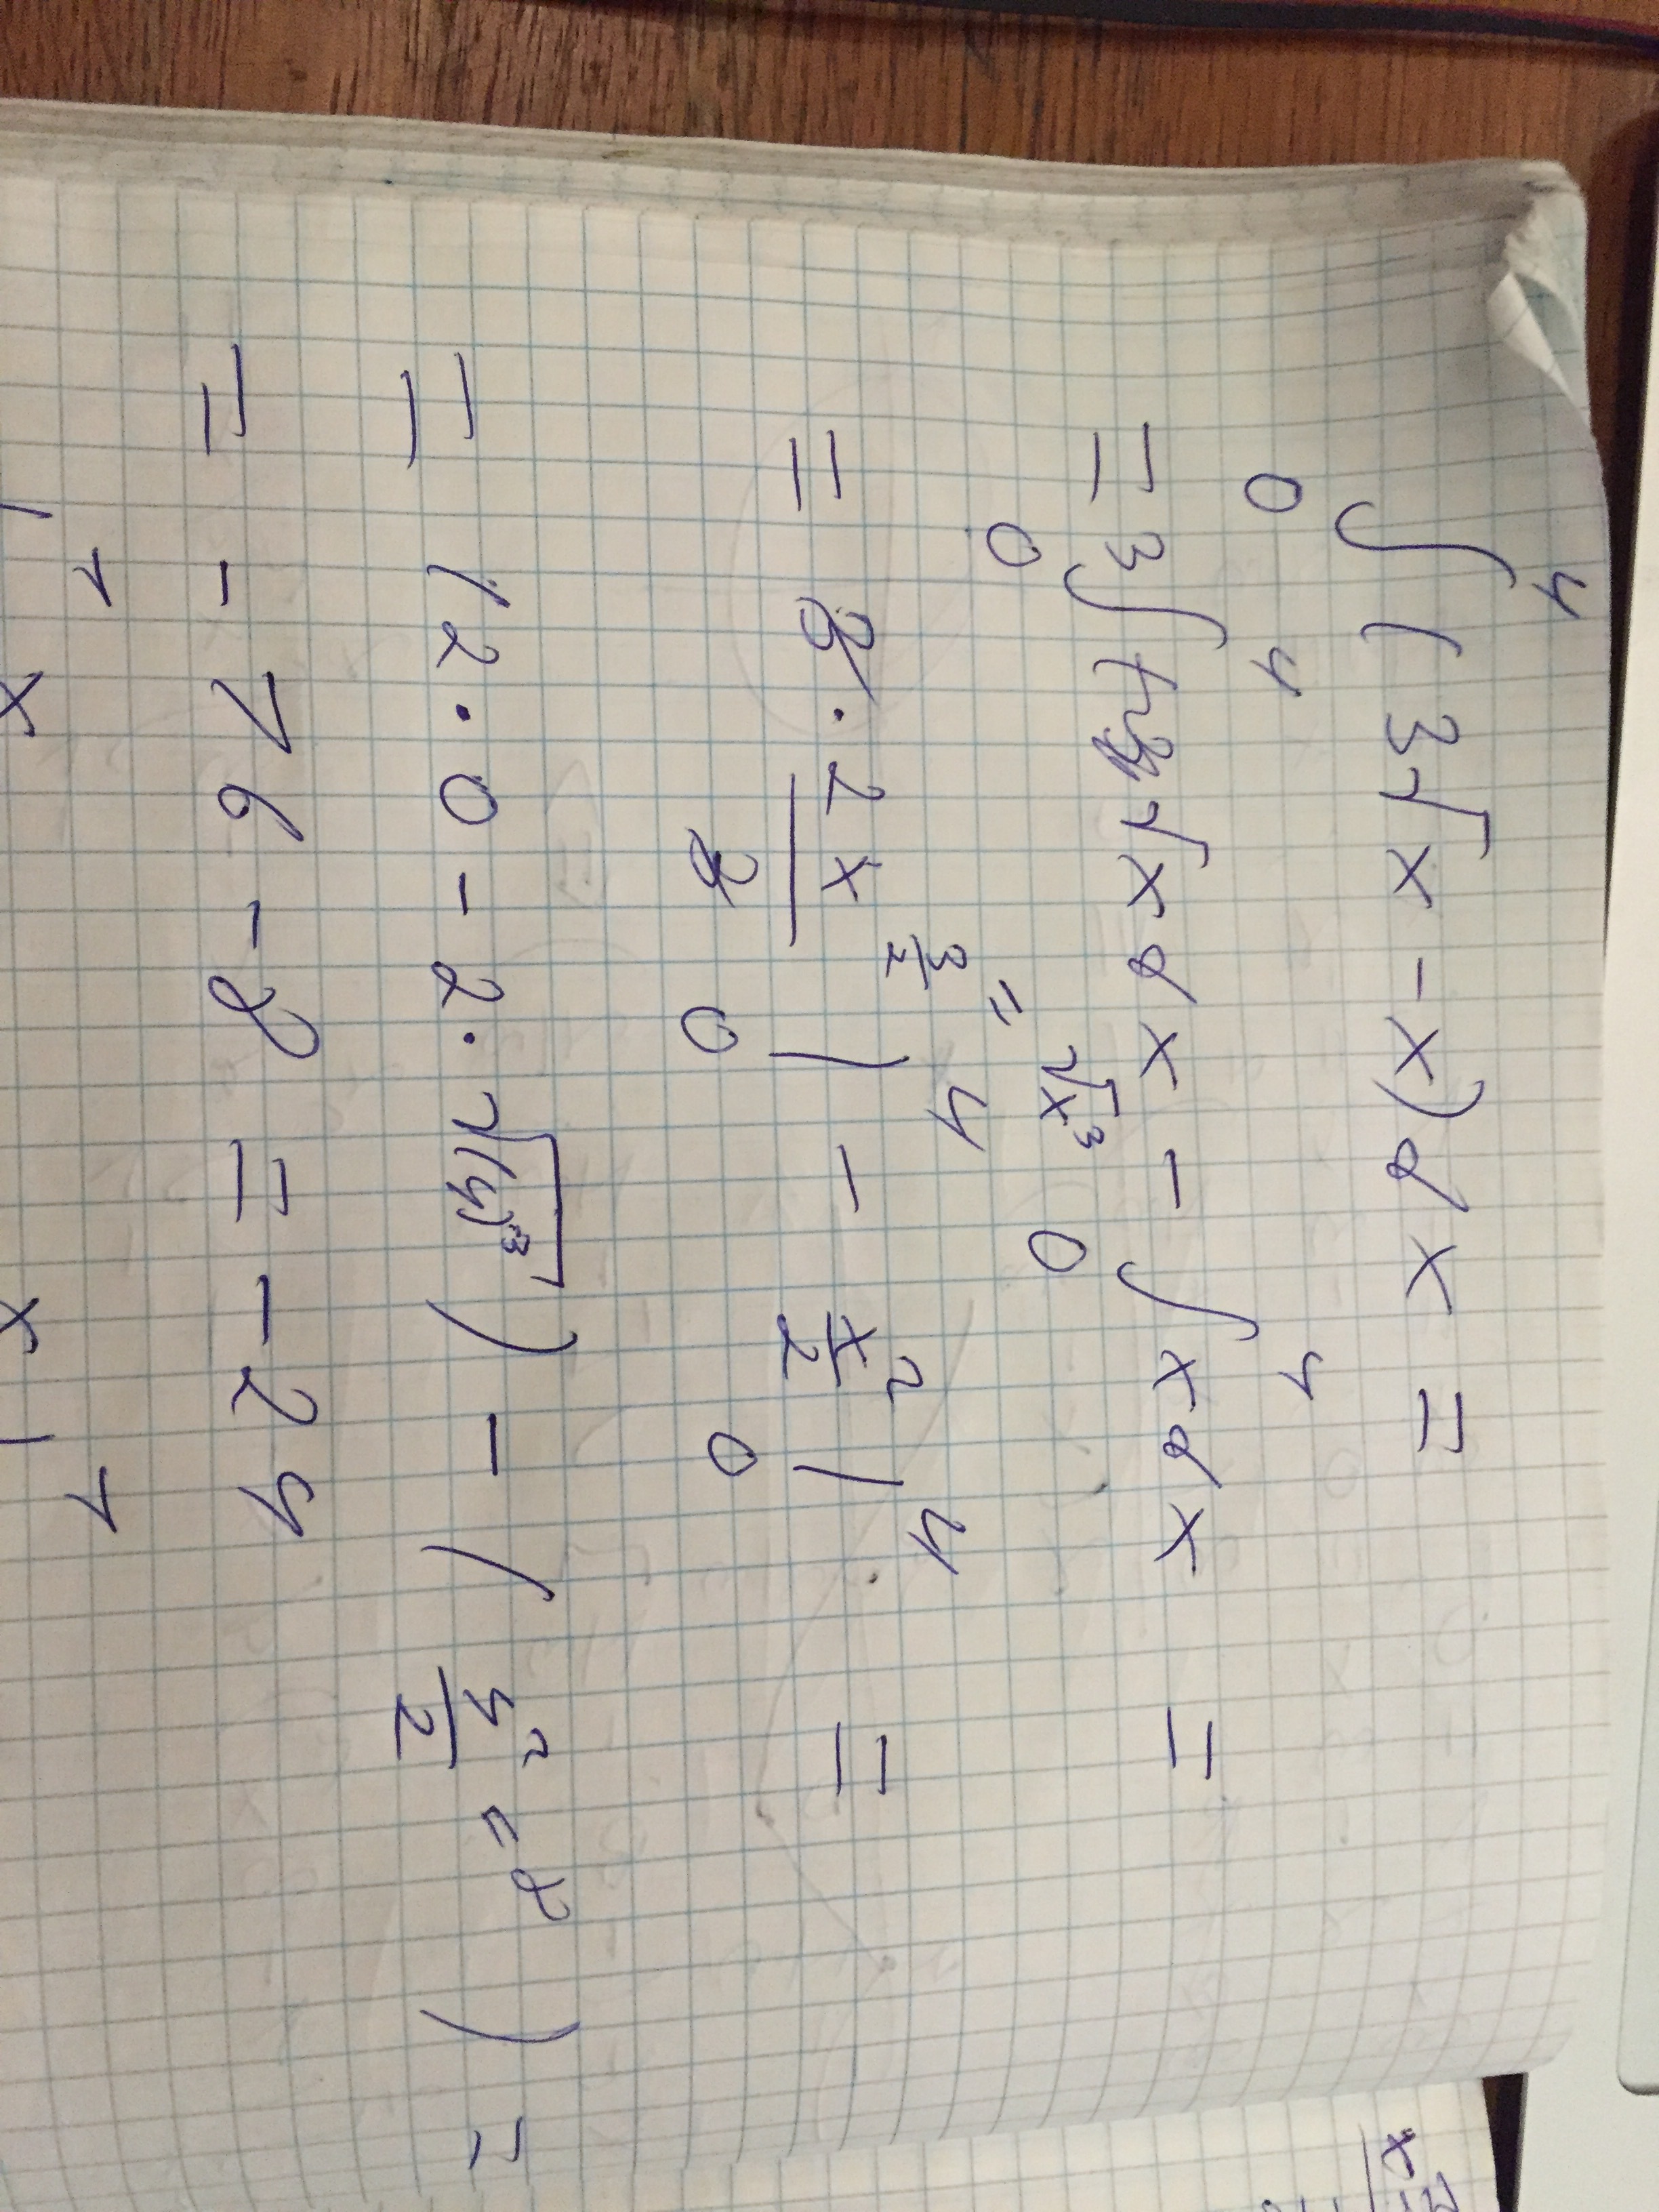 ∫₀⁴ (3√x - x) dx =
= 3 ∫₀⁴ √x dx - ∫₀⁴ x dx =
= 3 · 2x^(3/2) / 3 |₀⁴ - x²/2 |₀⁴ =
= √x³
= (2 · 0 - 2 · √(4)³) - (4²/2 = 8) =
= - 16 - 8 = - 24